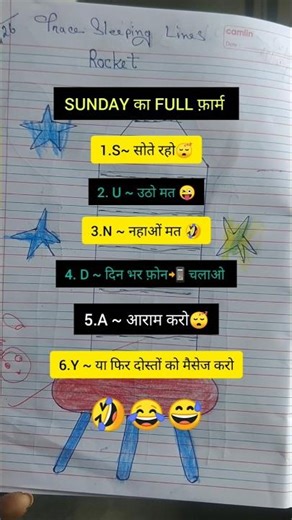 26
Trace Sleeping Lines
camlin
Rocket
SUNDAY का FULL फ़ार्म
1.S~ सोते रहो😴
2. U ~ उठो मत 😜
3.N ~ नहाओं मत 🤣
4. D ~ दिन भर फ़ोन📲 चलाओ
5.A ~ आराम करो😴
6.Y ~ या फिर दोस्तों को मैसेज करो
🤣😂😅